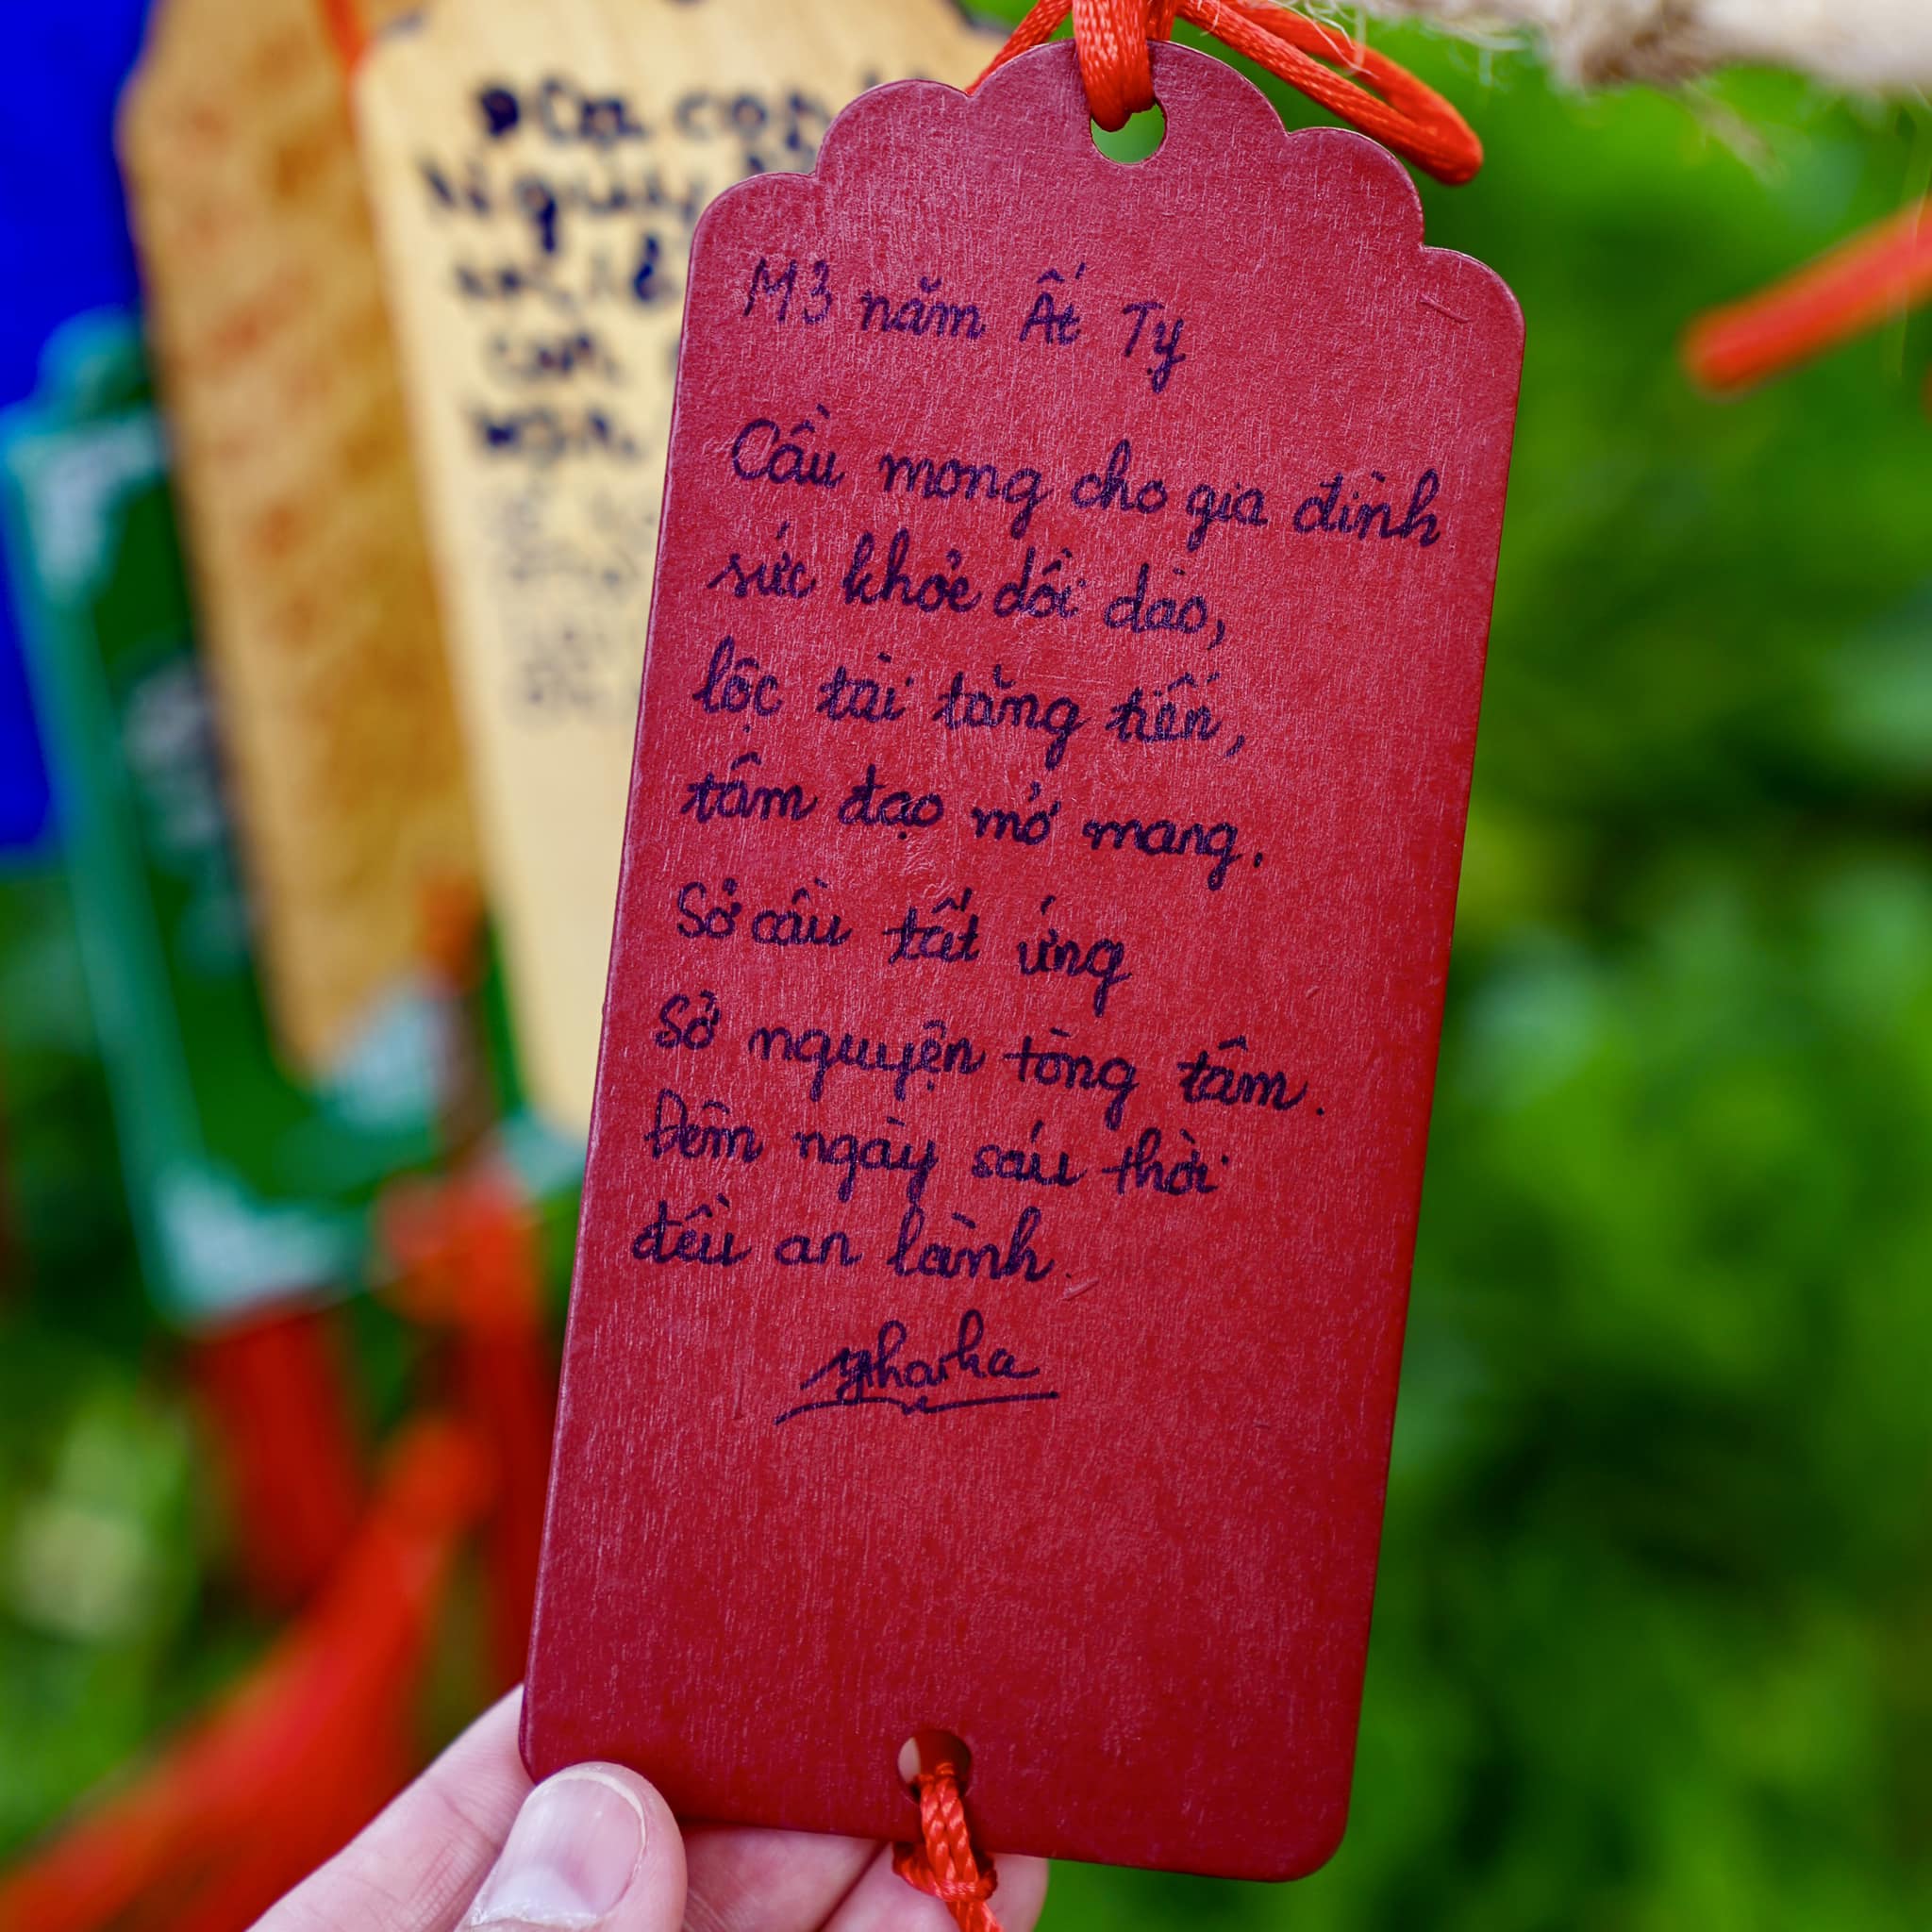 M3 năm Ất Tỵ
Cầu mong cho gia đình
sức khỏe dồi dào,
lộc tài tăng tiến,
tâm đạo mở mang.
Sở cầu tất ứng
Sở nguyện tòng tâm.
Đêm ngày sáu thời
đều an lành.